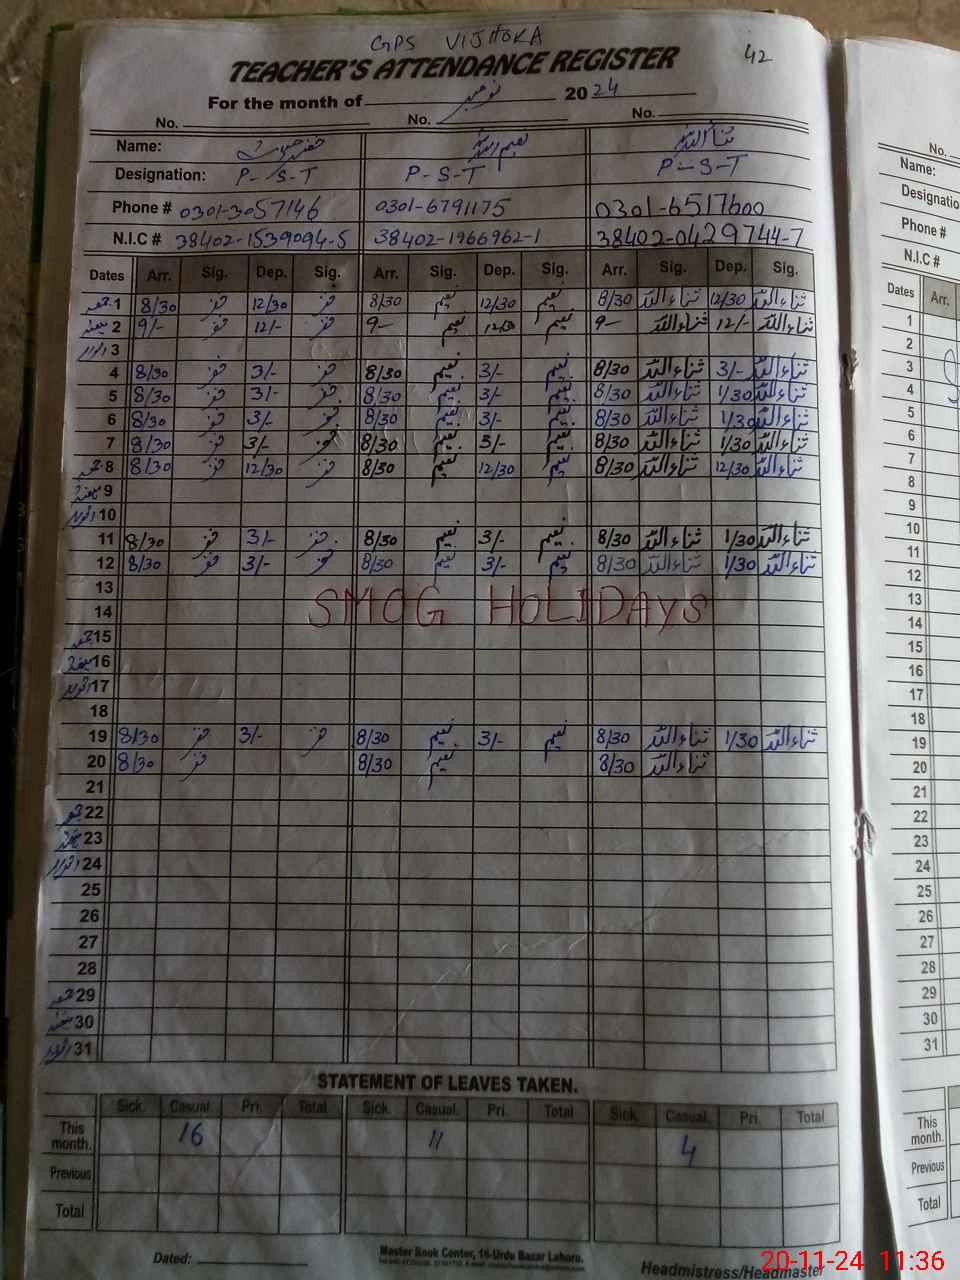 GPS VIJHOKA
42
TEACHER'S ATTENDANCE REGISTER
For the month of نومبر 2024
No. No. No.
Name: نعیم اللہ ثناء اللہ
Designation: P-S-T P-S-T P-S-T
Phone # 0301-3057146 0301-6791175 0301-6517600
N.I.C # 38402-1539094-5 38402-1966962-1 38402-0429744-7
Dates Arr. Sig. Dep. Sig. Arr. Sig. Dep. Sig. Arr. Sig. Dep. Sig.
جمعہ 1 8/30 12/30 8/30 نعیم 12/30 نعیم 8/30 ثناء اللہ 12/30 ثناء اللہ
ہفتہ 2 9/- 12/- 9- نعیم 12/30 نعیم 9- ثناء اللہ 12/- ثناء اللہ
اتوار 3
4 8/30 3/- 8/30 نعیم 3/- نعیم 8/30 ثناء اللہ 3/- ثناء اللہ
5 8/30 3/- 8/30 نعیم 3/- نعیم 8/30 ثناء اللہ 1/30 ثناء اللہ
6 8/30 3/- 8/30 نعیم 3/- نعیم 8/30 ثناء اللہ 1/30 ثناء اللہ
7 8/30 3/- 8/30 نعیم 3/- نعیم 8/30 ثناء اللہ 1/30 ثناء اللہ
جمعہ 8 8/30 12/30 8/30 نعیم 12/30 نعیم 8/30 ثناء اللہ 12/30 ثناء اللہ
ہفتہ 9
اتوار 10
11 8/30 3/- 8/30 نعیم 3/- نعیم 8/30 ثناء اللہ 1/30 ثناء اللہ
12 8/30 3/- 8/30 نعیم 3/- نعیم 8/30 ثناء اللہ 1/30 ثناء اللہ
13
14 SMOG HOLIDAYS
جمعہ 15
ہفتہ 16
اتوار 17
18
19 8/30 3/- 8/30 نعیم 3/- نعیم 8/30 ثناء اللہ 1/30 ثناء اللہ
20 8/30 8/30 نعیم 8/30 ثناء اللہ
21
جمعہ 22
ہفتہ 23
اتوار 24
25
26
27
28
جمعہ 29
ہفتہ 30
اتوار 31
STATEMENT OF LEAVES TAKEN.
Sick. Casual. Pri. Total Sick. Casual. Pri. Total Sick. Casual. Pri. Total
This month. 16 11 4
Previous
Total
Dated:
Master Book Center, 16-Urdu Bazar Lahore.
Headmistress/Headmaster
No.
Name:
Designatio
Phone #
N.I.C #
Dates Arr.
1
2
3
4
5
6
7
8
9
10
11
12
13
14
15
16
17
18
19
20
21
22
23
24
25
26
27
28
29
30
31
This month.
Previous
Total
20-11-24 11:36